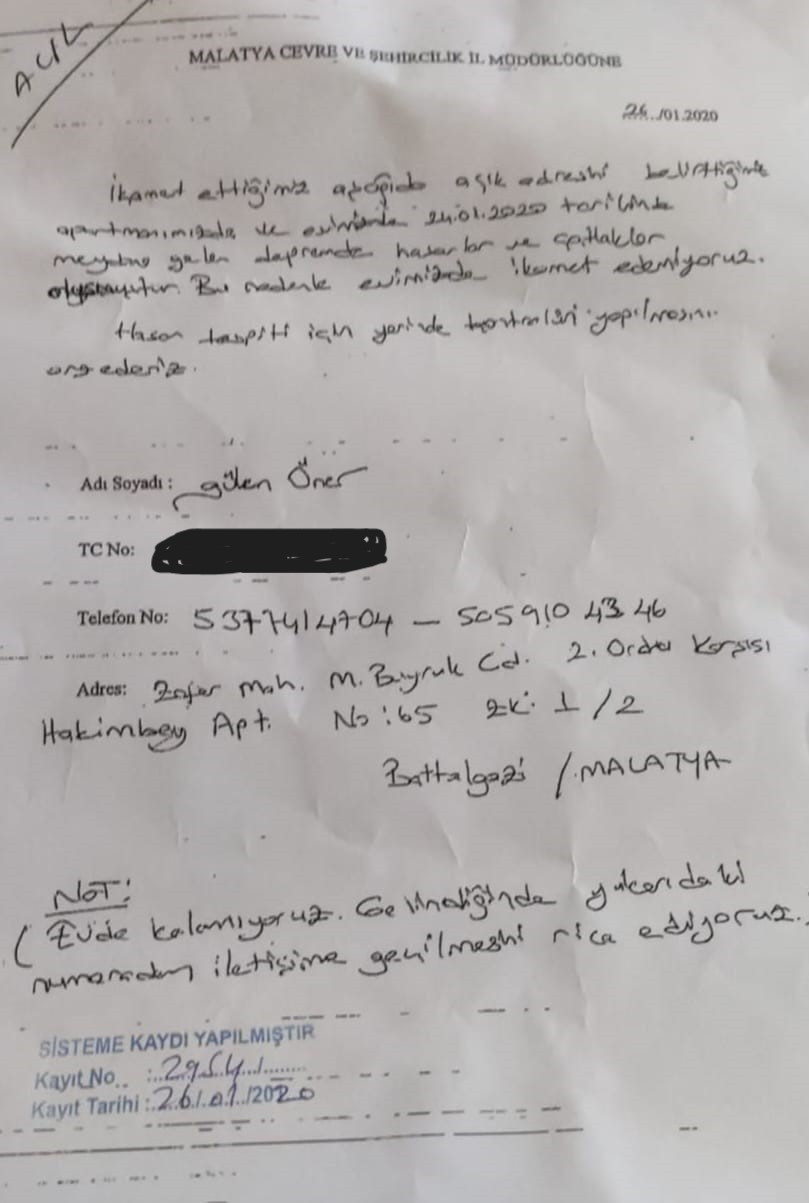 ACİL
MALATYA ÇEVRE VE ŞEHİRCİLİK İL MÜDÜRLÜĞÜNE
26../01.2020
İkamet ettiğimiz aşağıda açık adresini belirttiğimiz
apartmanımızda ve evimizde 24.01.2020 tarihinde
meydana gelen depremde hasarlar ve çatlaklar
oluşmuştur. Bu nedenle evimizde ikamet edemiyoruz.
Hasar tespiti için yerinde kontrolün yapılmasını
arz ederiz.
Adı Soyadı : Gülen Öner
TC No:
Telefon No: 5377414704 - 505 910 43 46
Adres: Zafer Mah. M. Buyruk Cd. 2. Ordu Karşısı
Hakimbey Apt. No:65 K: 1/2
Battalgazi / MALATYA
NOT:
( Evde kalamıyoruz. Gelindiğinde yukarıdaki
numaradan iletişime geçilmesini rica ediyoruz.
SİSTEME KAYDI YAPILMIŞTIR
Kayıt No.. :..2954../........
Kayıt Tarihi :.26./.01./2020